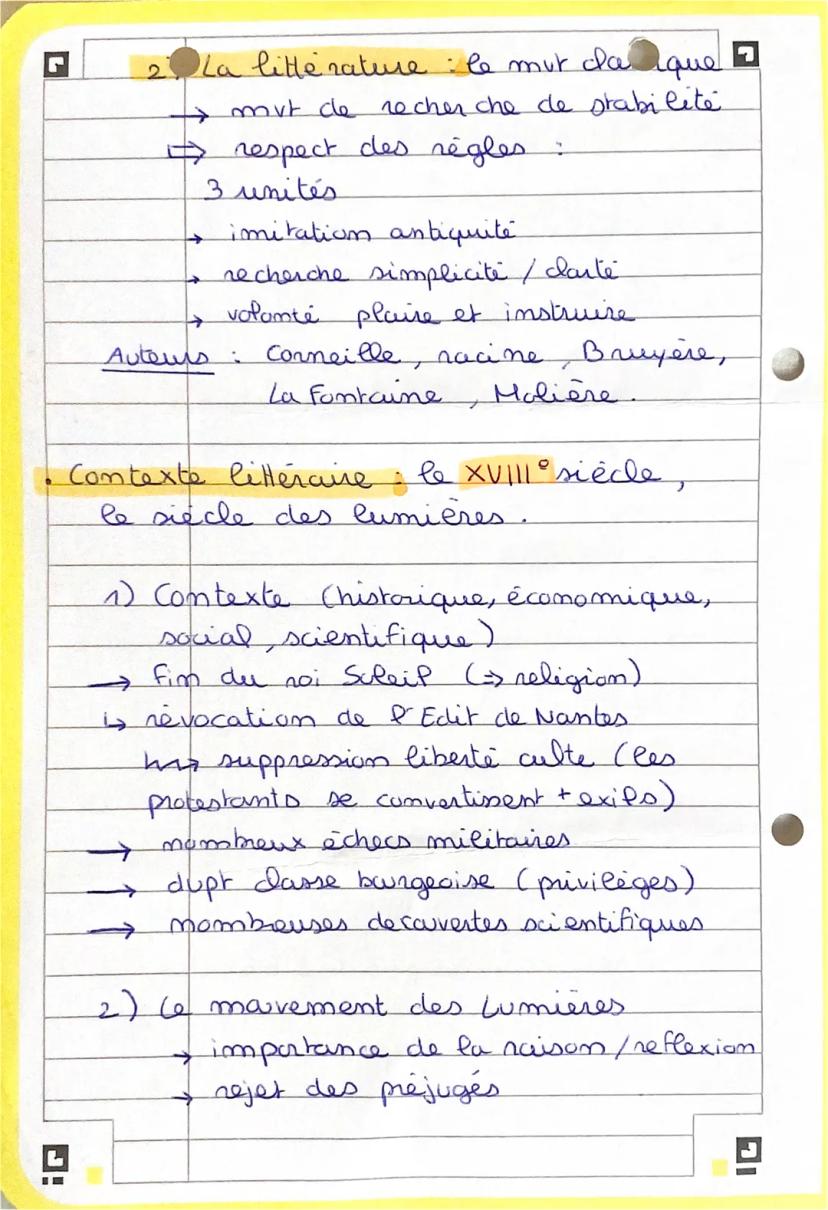 2) La littérature : le mvt classique
→ mvt de recherche de stabilité
⇒ respect des règles :
3 unités
→ imitation antiquité
→ recherche simplicité / clarté
→ volonté plaire et instruire
Auteurs : Corneille, racine, Bruyère,
La Fontaine, Molière.
. Contexte littéraire : le XVIIIe siècle,
le siècle des lumières.
1) Contexte (historique, économique,
social, scientifique)
→ fin du roi Soleil (⇒ religion)
↳ révocation de l'Edit de Nantes
↳ suppression liberté culte (les
protestants se convertissent + exils)
→ nombreux échecs militaires
→ dvpt classe bourgeoise (privilèges)
→ nombreuses decouvertes scientifiques
2) Le mouvement des Lumières
→ importance de la raison / reflexion
→ rejet des préjugés